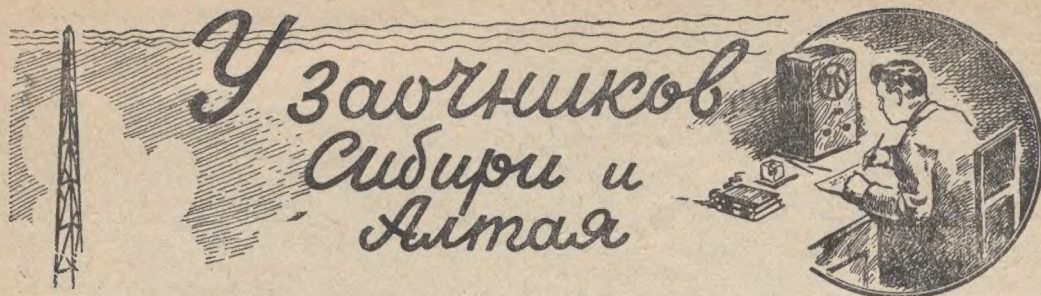 У заочников
Сибири и
Алтая